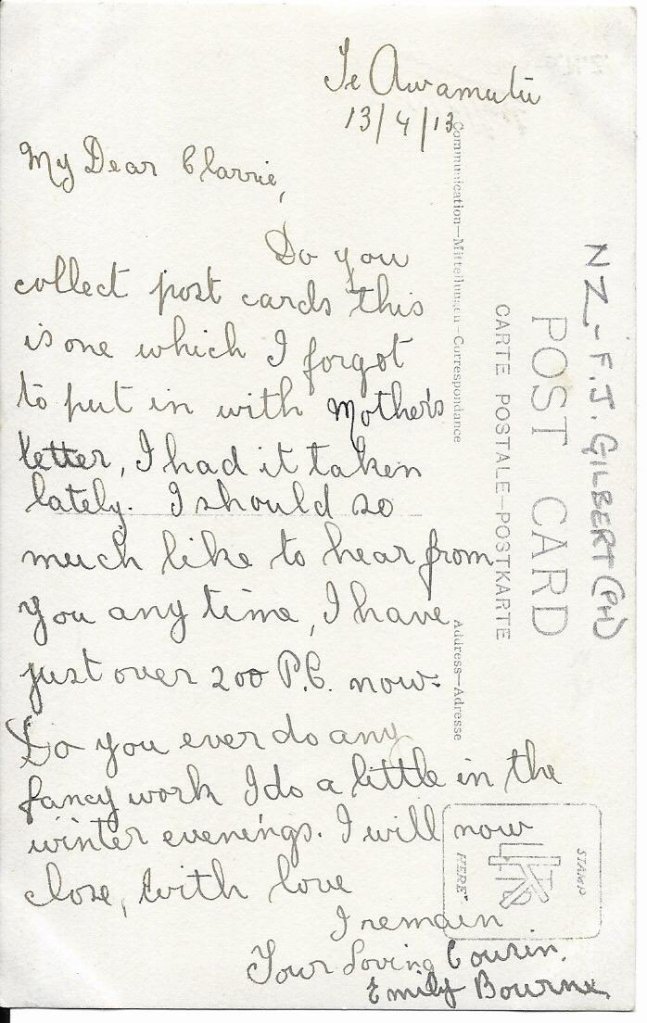 Te Awamutu
13/4/13
My Dear Clarrie,
Do you
collect post cards this
is one which I forgot
to put in with Mother's
letter, I had it taken
lately. I should so
much like to hear from
you any time, I have
just over 200 P.C. now.
Do you ever do any
fancy work I do a little in the
winter evenings. I will now
close, with love
I remain
Your Loving Cousin,
Emily Bourne.
Communication—Mitteilungen—Correspondance
Address—Adresse
CARTE POSTALE—POSTKARTE
POST CARD
NZ - F.J. GILBERT (PH)
STAMP
HERE